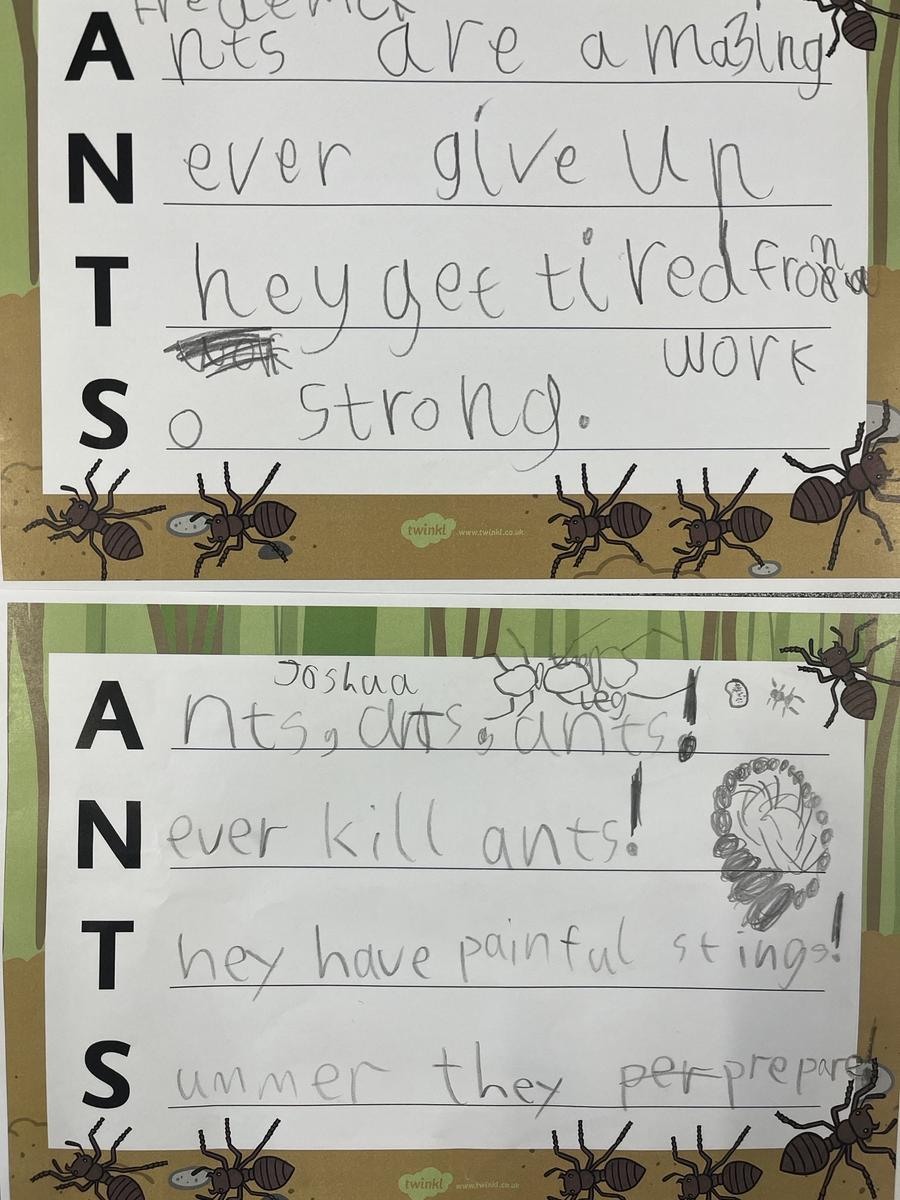 Frederick
Ants are amazing
Never give up
They get tired from
work
So strong.
twinkl www.twinkl.co.uk
Joshua
leg
Ants, ants, ants!
Never kill ants!
They have painful stings!
Summer they per prepare
twinkl www.twinkl.co.uk